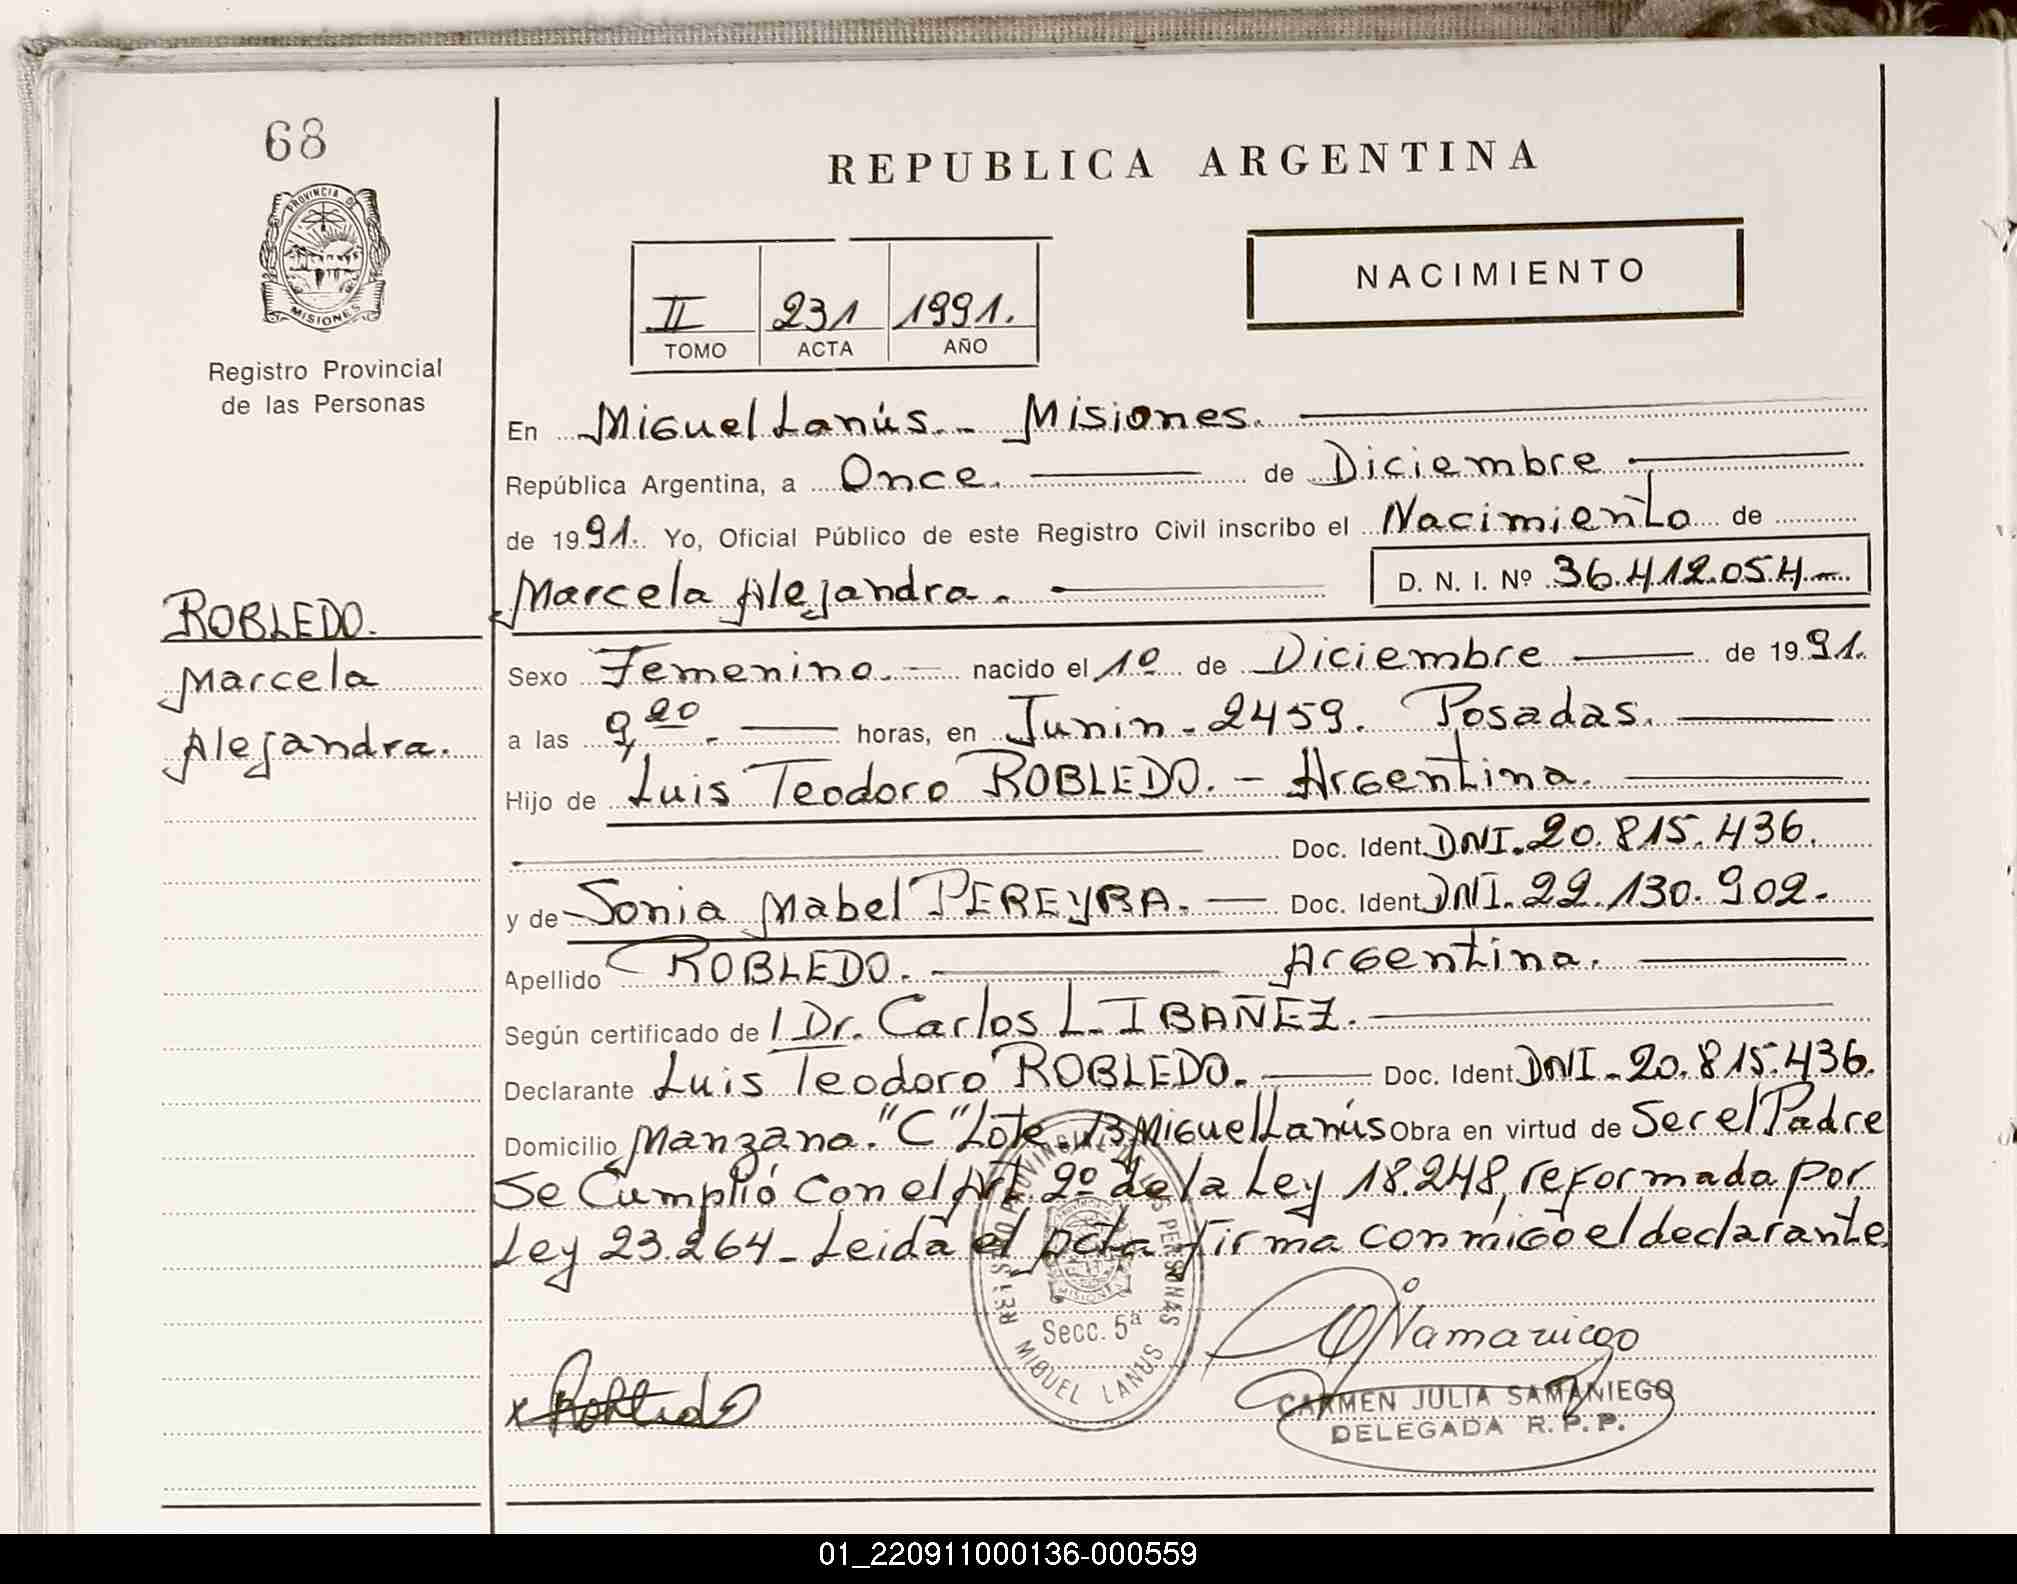 68
PROVINCIA DE
MISIONES
Registro Provincial
de las Personas
ROBLEDO.
Marcela
Alejandra.
REPUBLICA ARGENTINA
NACIMIENTO
II 231 1991.
TOMO ACTA AÑO
En Miguel Lanús.- Misiones.
República Argentina, a Once. de Diciembre
de 1991. Yo, Oficial Público de este Registro Civil inscribo el Nacimiento de
Marcela Alejandra. D. N. I. Nº 36.412.054-
Sexo Femenino.- nacido el 1º de Diciembre de 1991.
a las 9,20. horas, en Junin-2459. Posadas.
Hijo de Luis Teodoro ROBLEDO. - Argentina.
Doc. Ident DNI.20.815.436.
y de Sonia Mabel PEREYRA. Doc. Ident DNI.22.130.902.
Apellido ROBLEDO. Argentina.
Según certificado de l Dr. Carlos L. IBAÑEZ.
Declarante Luis Teodoro ROBLEDO. Doc. Ident DNI-20.815.436.
Domicilio Manzana."C" Lote.13 Miguel Lanús Obra en virtud de Ser el Padre
Se Cumplió con el Art. 2º de la Ley 18.248, reformada por
Ley 23.264- Leida el Acta firma conmigo el declarante
REGISTRO PROVINCIAL DE LAS PERSONAS
MISIONES
Secc. 5ª
MIGUEL LANUS
x Robledo
Samaniego
CARMEN JULIA SAMANIEGO
DELEGADA R.P.P.
01_220911000136-000559